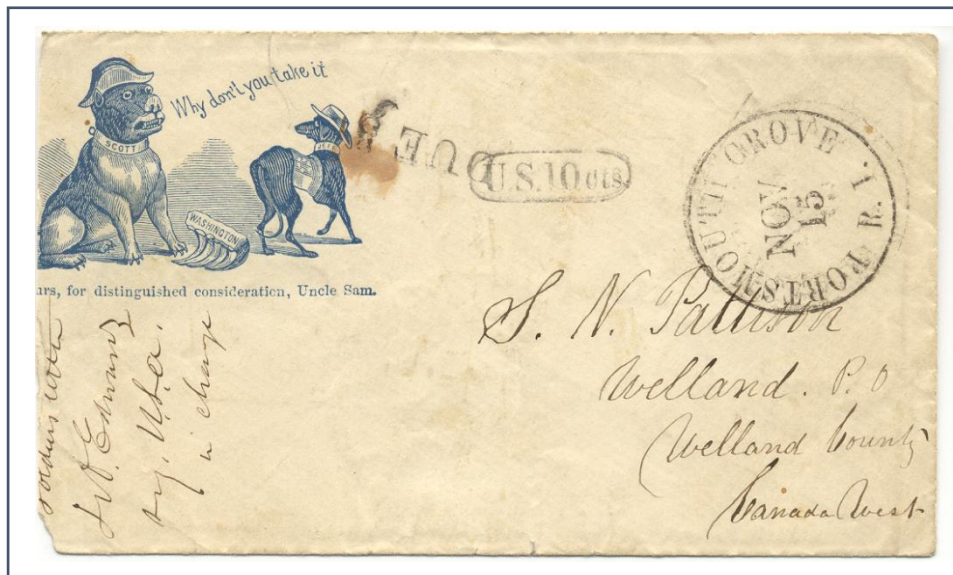 Why don't you take it
SCOTT
JEFF
WASHINGTON
urs, for distinguished consideration, Uncle Sam.
DUE
U.S.10cts
PORTSMOUTH GROVE R.I.
NOV
15
S. N. Pattison
Welland. P.O
Welland County
Canada West
Soldiers letter
Edward
U.S.A.
in charge